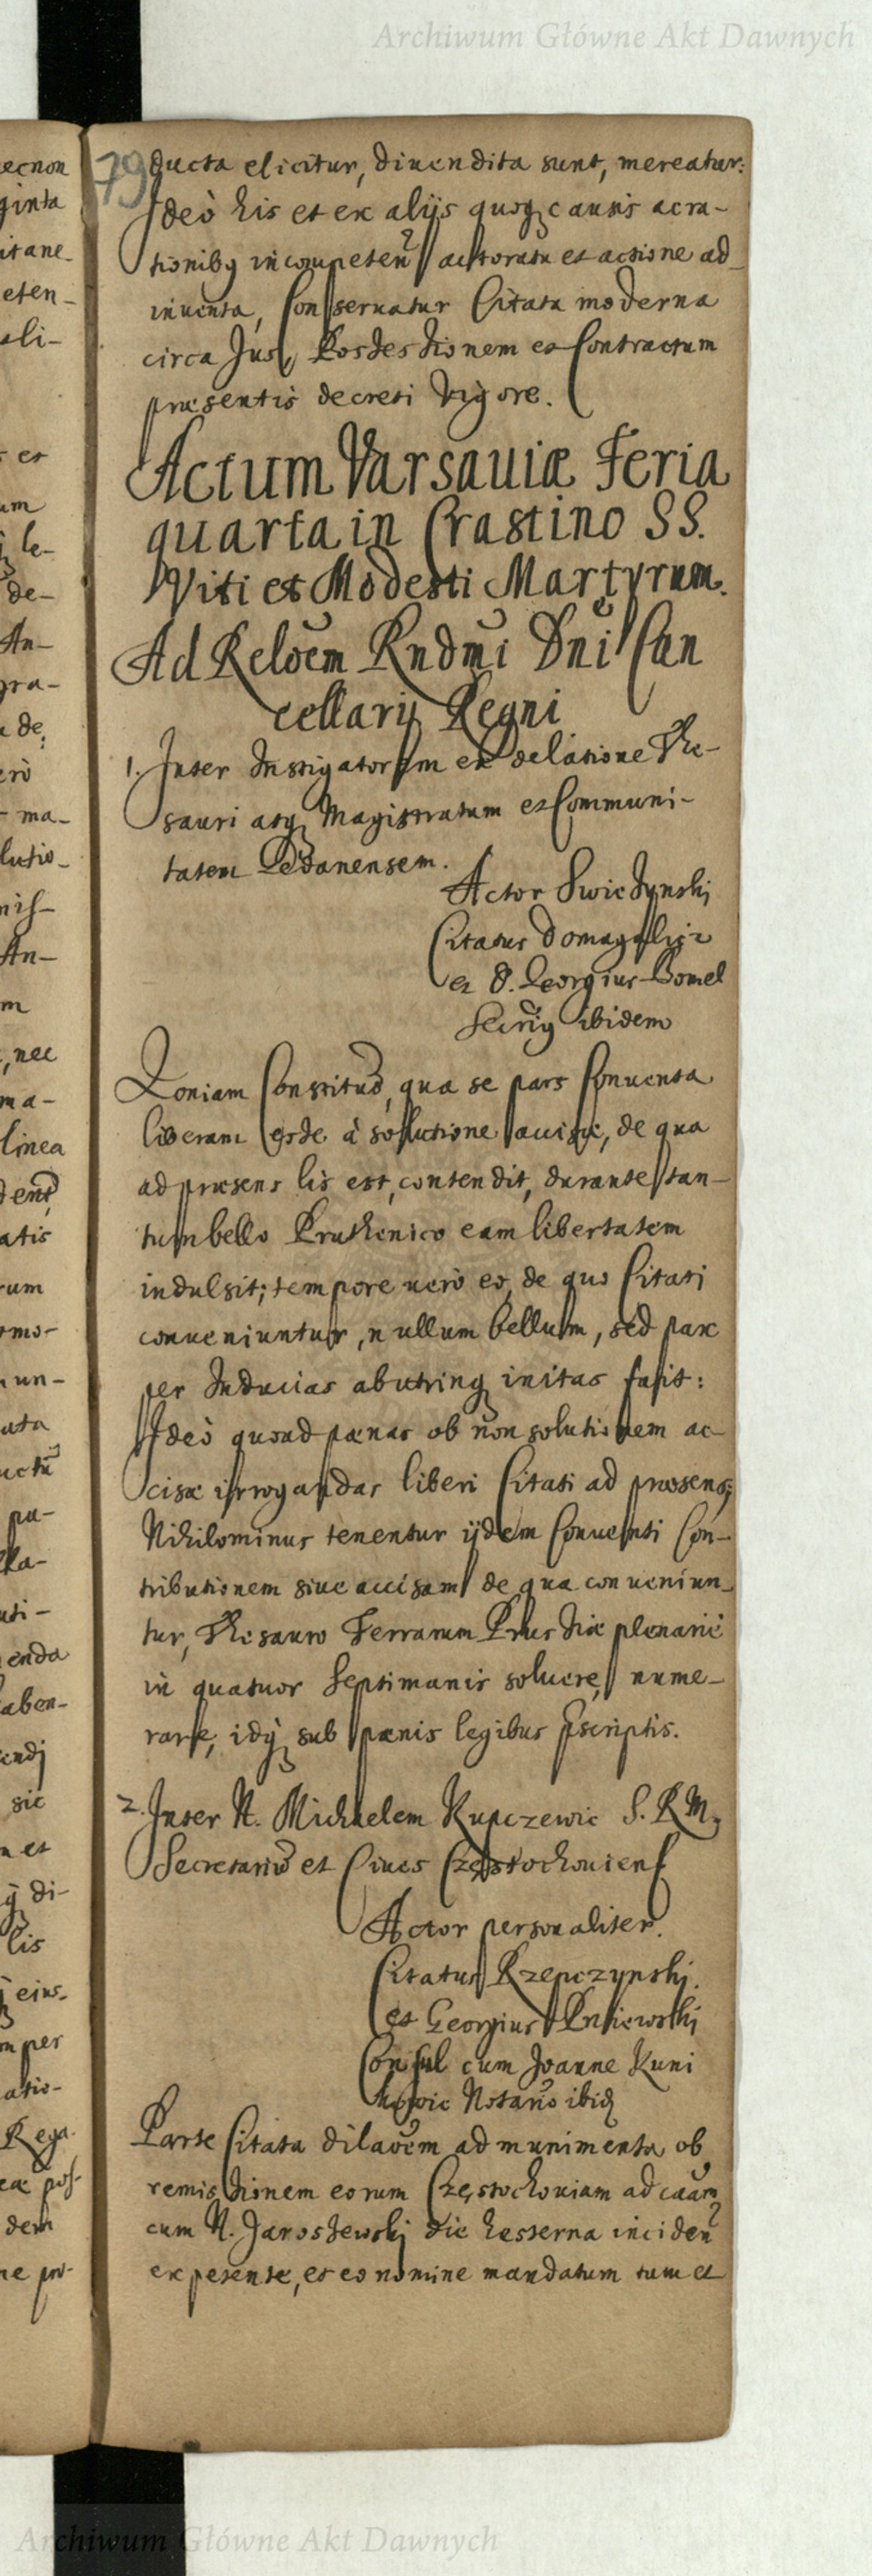 Archiwum Główne Akt Dawnych
79
ducta elicitur, diuendita sunt, mereatur:
Ideò his et ex alijs quoq; causis acra-
tionibq incompeten actoratu et actione ad-
inuenta, Conseruatur Citata moderna
circa Jus, Possessionem et Contractum
præsentis decreti vigore.
Actum Varsauiæ Feria
quarta in Crastino SS.
Viti et Modesti Martyrum.
Ad Reloem Rndmi Dni Can
cellarij Regni
1. Inter Instigatorem ex delatione The-
sauri atq; Magistratum et Communi-
tatem Gedanensem.
Actor Swieszynski
Citatus Domagalicz
et D. Georgius Bomel
Secrig ibidem
Qoniam Constituo, qua se pars Conuenta
liberam esse à solutione accisæ, de qua
ad præsens lis est, contendit, durante tan-
tum bello Pruthenico eam libertatem
indulsit; tempore uerò eo, de quo Citati
conueniuntur, nullum bellum, sed pax
per Inducias ab utrinq; initas fuit:
Ideò quoad pænas ob non solutionem ac-
cisæ irrogandas liberi Citati ad præsens;
Nihilominus tenentur ijdem Conuenti Con-
tributionem siue accisam de qua conueniun-
tur, Thesauro Terrarum Prussiæ plenariè
in quatuor Septimanis soluere, nume-
rare, idq; sub pænis legibus pscriptis.
2. Inter N. Michaelem Kupczewic S. R. M.
Secretariu et Ciues Częstochouiens
Actor personaliter.
Citatus Rzepczynski.
et Georgius Pniewski
Consul cum Joanne Kuni
kowic Notario ibid
Parte Citata dilaoem ad munimenta ob
remissionem eorum Częstochouiam ad caam
cum N. Jaroszewski die hesterna inciden
expetente, et eo nomine mandatum tum et
ecnon
ginta
itane-
eten-
ali-
et
um
le-
de-
An-
gra-
de
erò
ma-
lutio-
nis-
An-
m
, nec
ma-
linea
dent
atis
rum
emo-
un-
ata
uctu
pu-
lla-
uti-
enda
aben-
endj
sic
n et
di-
lis
eius-
m per
atio-
Rega-
eæ pos-
dem
ne pro-
Archiwum Główne Akt Dawnych